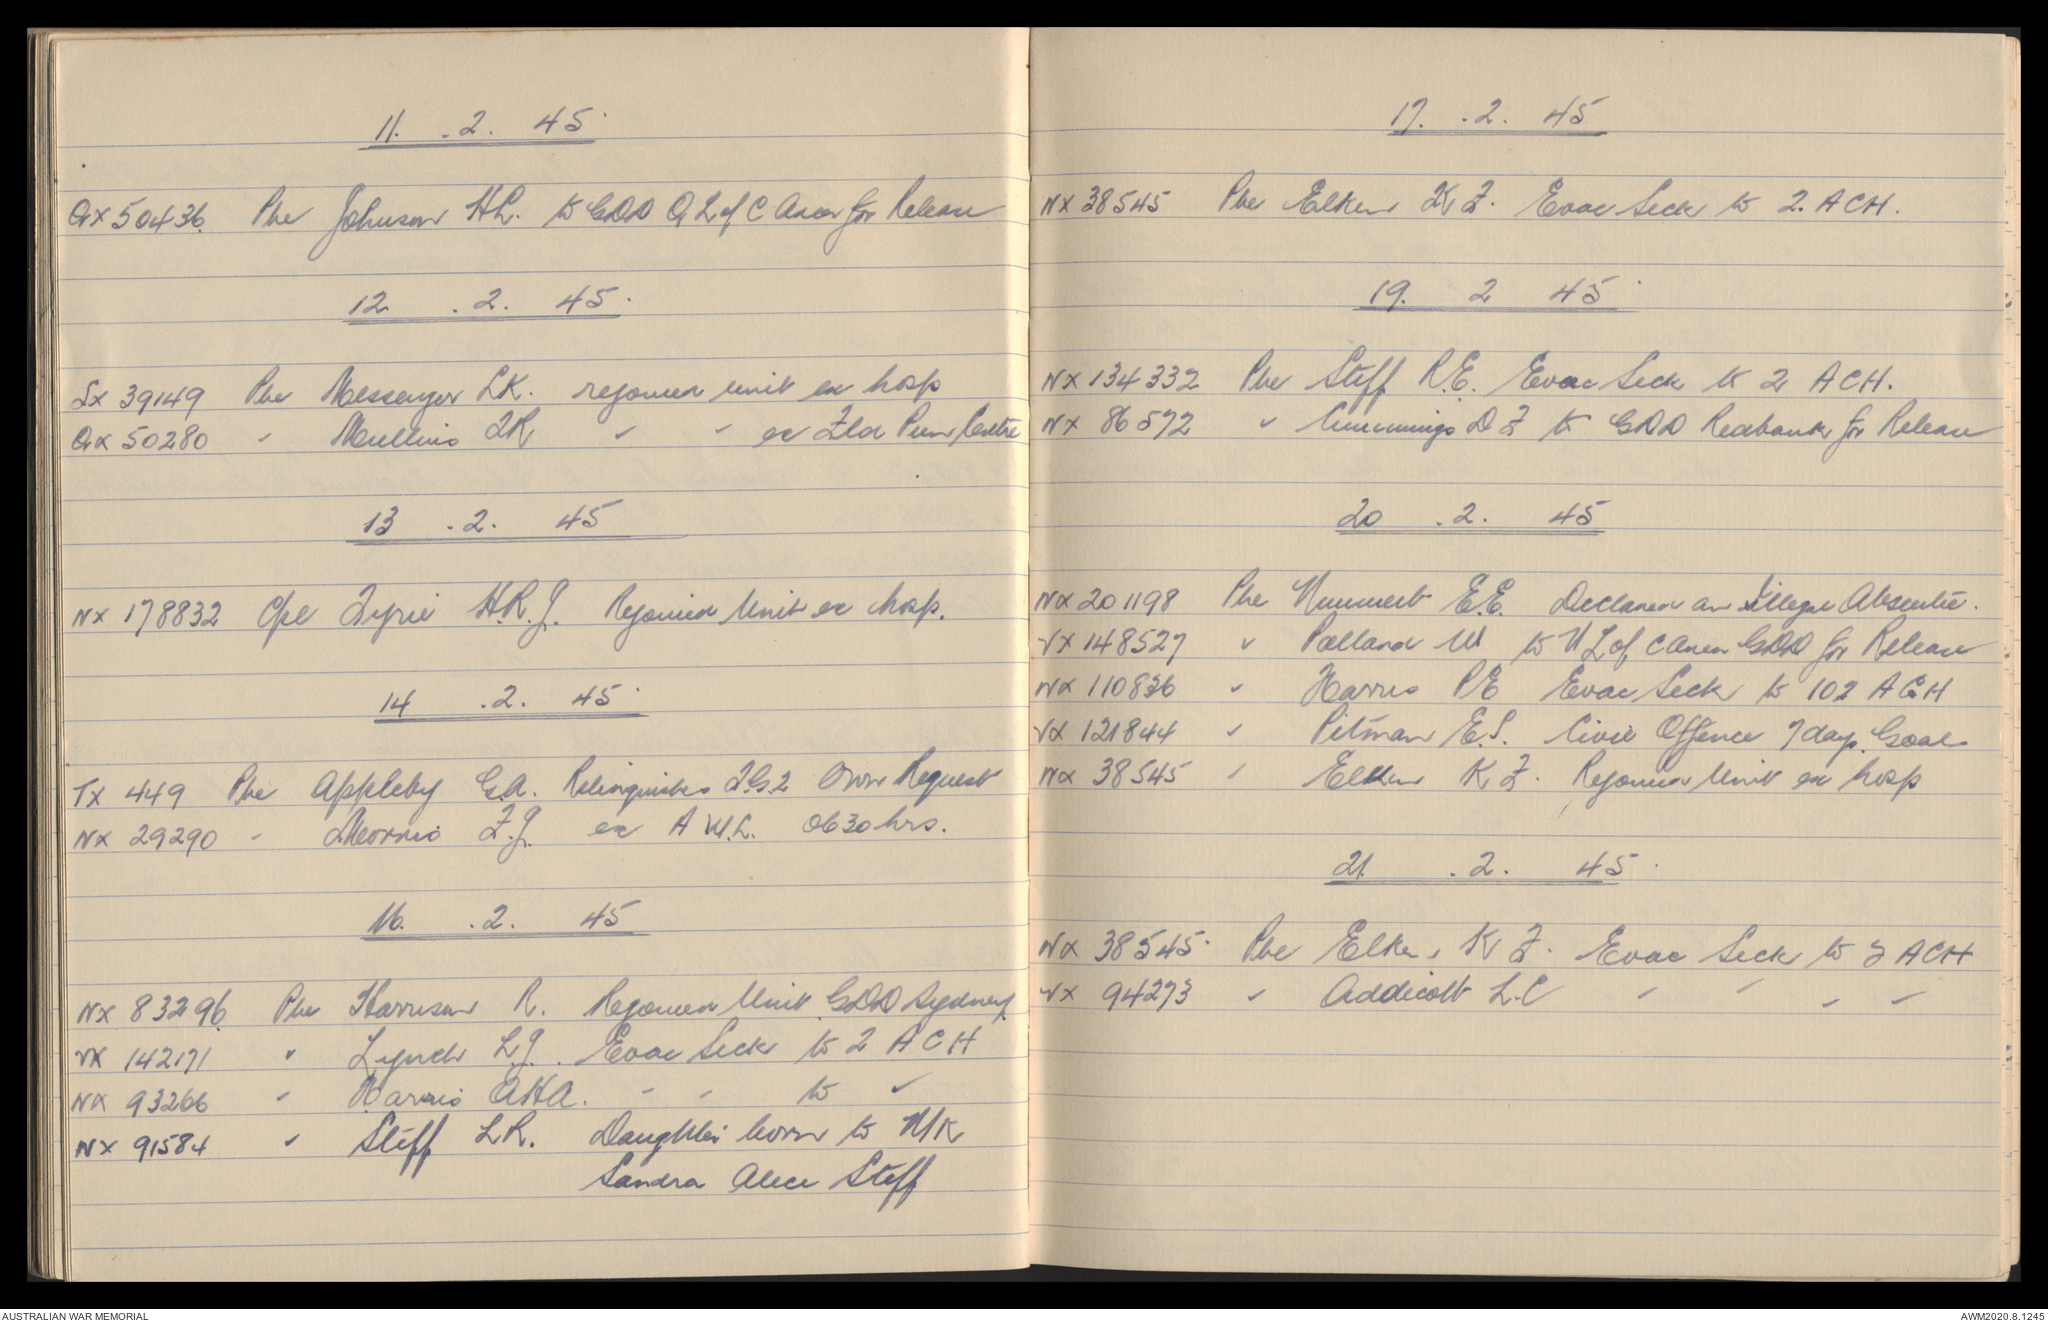 11. .2. 45.
QX 50436. Pte Johnson H.L. to GDD Q L of C Area for Release
12 .2. 45.
SX 39149 Pte Messenger L.K. rejoined unit ex hosp
QX 50280 " Mullins J K " " ex Fld Pun Centre
13 .2. 45
NX 178832 Cpl Fyrie H.R.J. Rejoined Unit ex hosp.
14 .2. 45.
TX 449 Pte Appleby G.A. Relinquishes T.G.2 Own Request
NX 29290 " Morris F.J. ex A.W.L. 0630 hrs.
16. .2. 45
NX 83296. Pte Harrison R. Rejoined Unit GDD Sydney
VX 142171 " Lynch L.J. Evac Sick to 2 ACH
NX 93266 " Harris A K A. " " to "
NX 91584 " Stiff L.R. Daughter born to N/K
Sandra Alice Stiff
17. .2. 45
NX 38545 Pte Elken K F. Evac Sick to 2. ACH.
19. 2 45.
NX 134332 Pte Stiff R.E. Evac Sick to 2 ACH.
NX 86572 " Cummings D F to GDD Redbank for Release
20 .2. 45
NX 201198 Pte E.E. Declared an Illegal Absentee.
VX 148527 " Polland W to N L of C Area GDD for Release
NX 110836 " Harris P E Evac Sick to 102 AGH
VX 121844 " Pitman E.S. Civil Offence 7 days Goal
NX 38545 " Elken K F. Rejoined Unit ex hosp
21. .2. 45.
NX 38545. Pte Elken K F. Evac Sick to 2 ACH
VX 94273 " Addicott L.C " " " "
AUSTRALIAN WAR MEMORIAL
AWM2020.8.1245